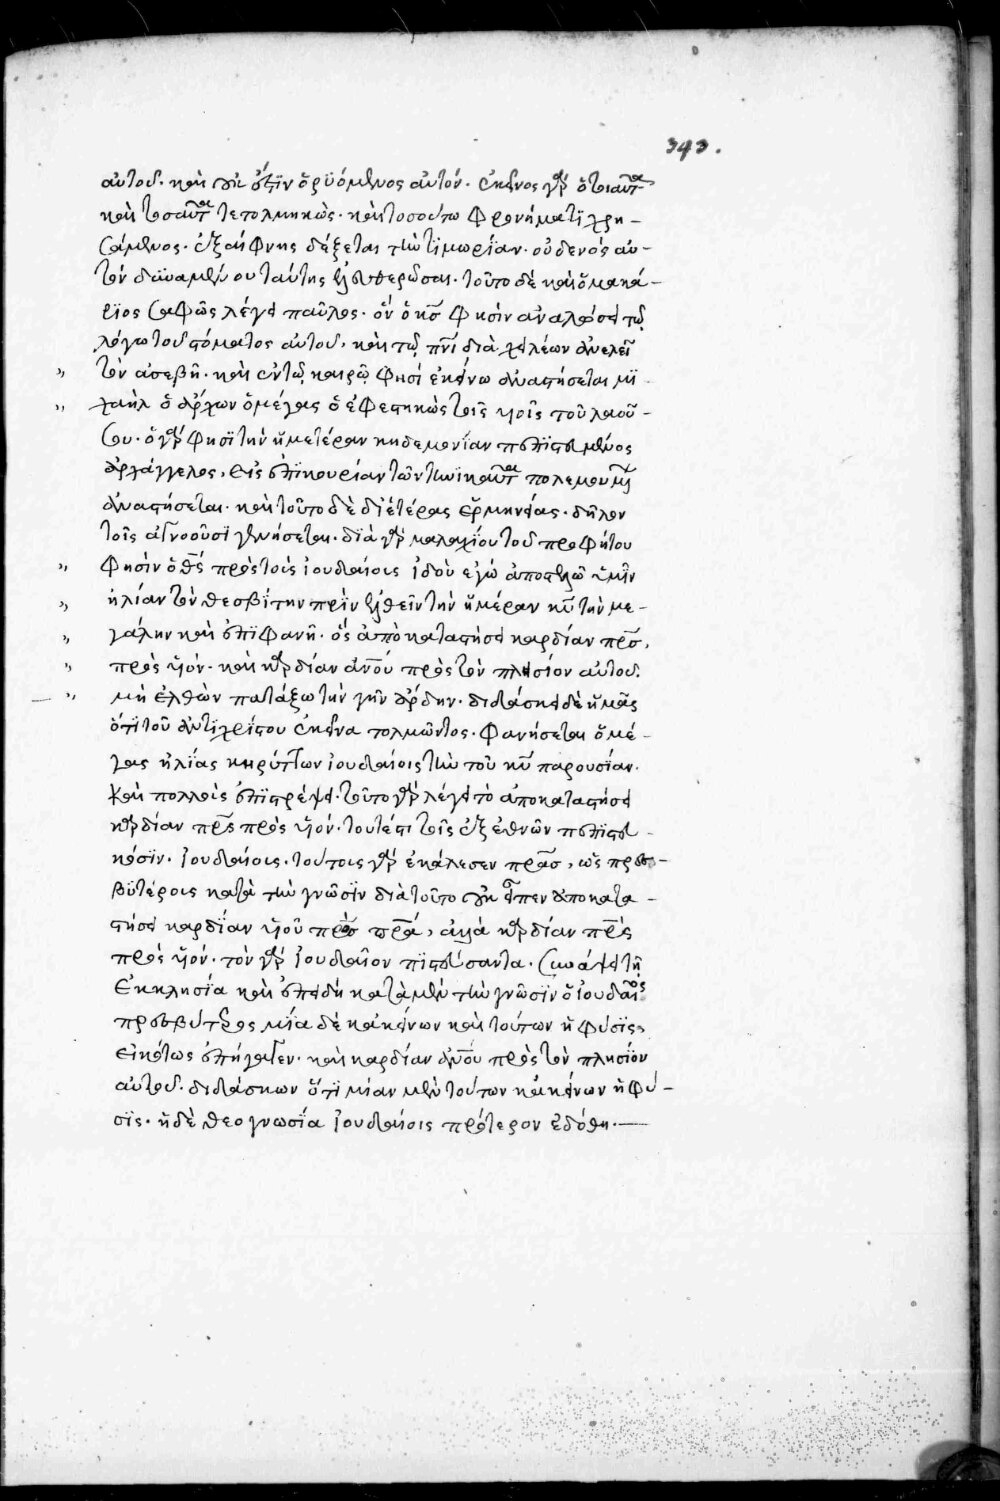 343.
αὐτοῦ. καὶ οὐκ ἔστιν ὁ ῥυόμενος αὐτόν. ἐκεῖνος γὰρ ὁ τοιαῦτα
καὶ τοσαῦτα τετολμηκὼς. καὶ τοσούτω φρονήματι χρη-
σάμενος. ἐξαίφνης δέξεται τὴν τιμωρίαν. οὐδενός αυ-
τόν δϋναμένου ταύτης ἐλευθερῶσαι. τοῦτο δὲ καὶ ὁ μακά-
ριος σαφῶς λέγει παῦλος. ὅν ὁ κς φησὶν ἀναλώσει τῷ
λόγω τοῦ στόματος αὐτοῦ. καὶ τῷ πνι διὰ χειλέων ἀνελεῖ
" τὸν ἀσεβῆ. καὶ ἐν τῷ καιρῷ φησὶ ἐκείνω ἀναστήσεται μϊ-
" χαὴλ ὁ ἄρχων ὁ μέγας ὁ ἐφεστηκὼς τοῖς υἱοῖς τοῦ λαοῦ-
σου. ὁ γάρ φησϊ τὴν ἡμετέραν κηδεμονίαν πεπϊστευμένος
ἀρχάγγελος, εἰς ἐπϊκουρίαν τῶν τηνικαῦτα πολεμουμένων
ἀναστήσεται. καὶ τοῦτο δὲ δι' ἑτέρας ἑρμηνείας. δῆλον
τοῖς ἀγνοοῦσϊ γενήσεται. δϊὰ γὰρ μαλαχίου τοῦ προφήτου
" φησὶν ὁ θς πρὸς τοὺς ἰουδαίους ἰδοὺ εγὼ ἀποστελῶ ὑμῖν
" ἠλίαν τὸν θεσβίτην πρὶν ἐλθεῖν τὴν ἡμέραν κυ τὴν με-
" γάλην καὶ ἐπϊφανῆ. ὅς ἀποκαταστήσει καρδίαν πρς,
" πρὸς υἱόν. καὶ καρδίαν ἀνου πρὸς τὸν πλησίον αὐτοῦ.
" μὴ ἐλθὼν πατάξω τὴν γῆν ἄρδην. διδάσκει δὲ ἡμᾶς
ὅτϊ τοῦ ἀντϊχρίστου ἐκεῖνα τολμῶντος. φανήσεται ὁ μέ-
γας ἠλίας κηρύττων ἰουδαίοις τὴν τοῦ κυ παρουσίαν.
καὶ πολλοὺς ἐπϊστρέψει. τοῦτο γὰρ λέγει τὸ ἀποκαταστήσει
καρδίαν πρς πρὸς υἱόν. τουτέστι τοῖς ἐξ ἐθνῶν πεπϊστευ-
κόσϊν. ἰουδαίους. τούτους γὰρ ἐκάλεσεν πρας, ὡς πρεσ-
βϋτέρους κατὰ τὴν γνῶσϊν διὰ τοῦτο οὐκ εἶπεν ἀποκατα-
στήσει καρδΐαν υἱοῦ πρὸς πρα, ἀλλὰ καρδίαν πρς
πρὸς υἱόν. τὸν γὰρ ἰουδαῖον πϊστεύσαντα. συνάψει τῆ
ἐκκλησία καὶ ἐπειδὴ κατὰ μὲν τὴν γνῶσϊν ὁ ἰουδαῖος
πρεσβύτερος μΐα δὲ κακείνων καὶ τούτων ἡ φύσϊς,
εἰκότως ἐπήγαγεν. καὶ καρδίαν ἀνου πρὸς τὸν πλησΐον
αὐτοῦ. διδάσκων ὅτϊ μίαν μὲν τούτων κακείνων ἡ φύ-
σϊς. ἡ δὲ θεογνωσΐα ἰουδαίοις πρότερον ἐδόθη.